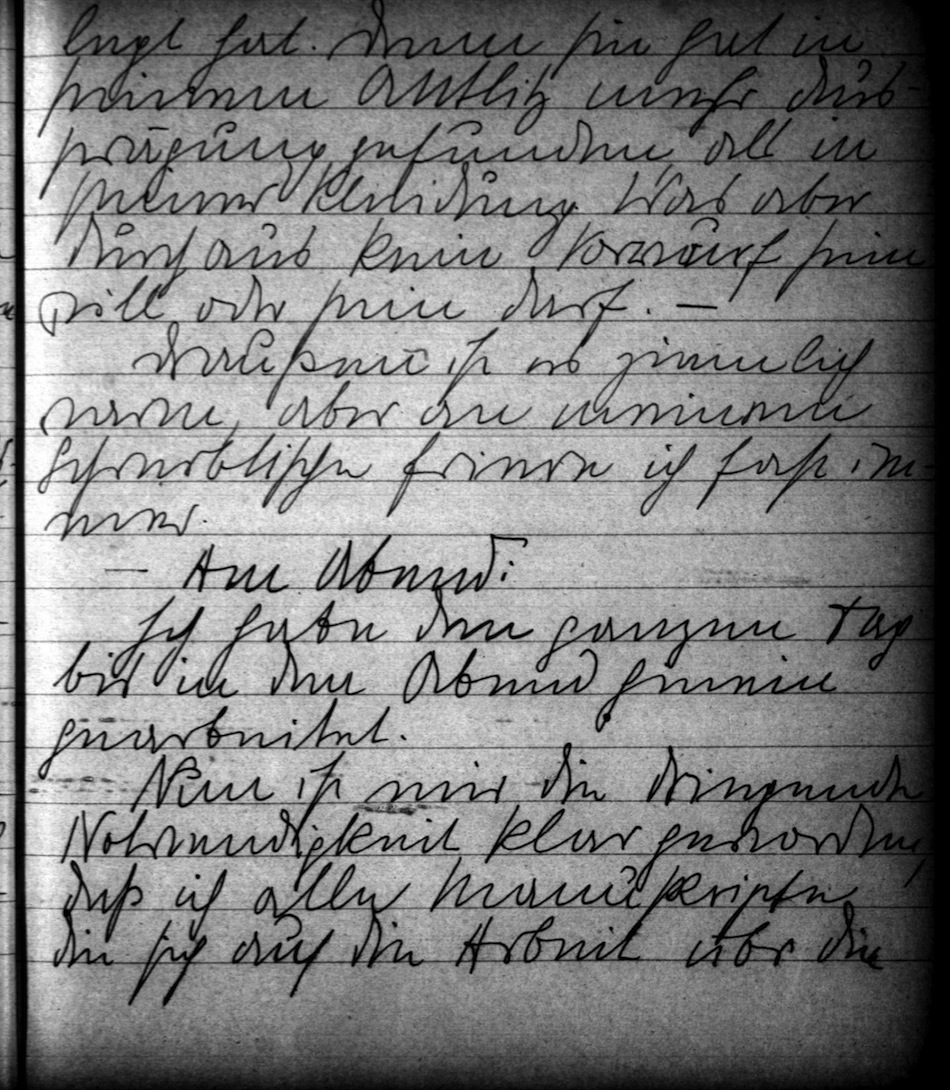 legt hat. Denn sie hat in
seinem Antlitz mehr Aus-
prägung gefunden, als in
seiner Kleidung. Was aber
durchaus kein Vorwurf sein
soll oder sein darf. —
Draußen ist es ziemlich
warm, aber an meinem
Schreibtische friere ich fast im-
mer.
— Am Abend:
Ich habe den ganzen Tag
bis in den Abend hinein
gearbeitet.
Nun ist mir die dringende
Notwendigkeit klar geworden,
daß ich alle Manuskripte,
die sich auf die Arbeit über die